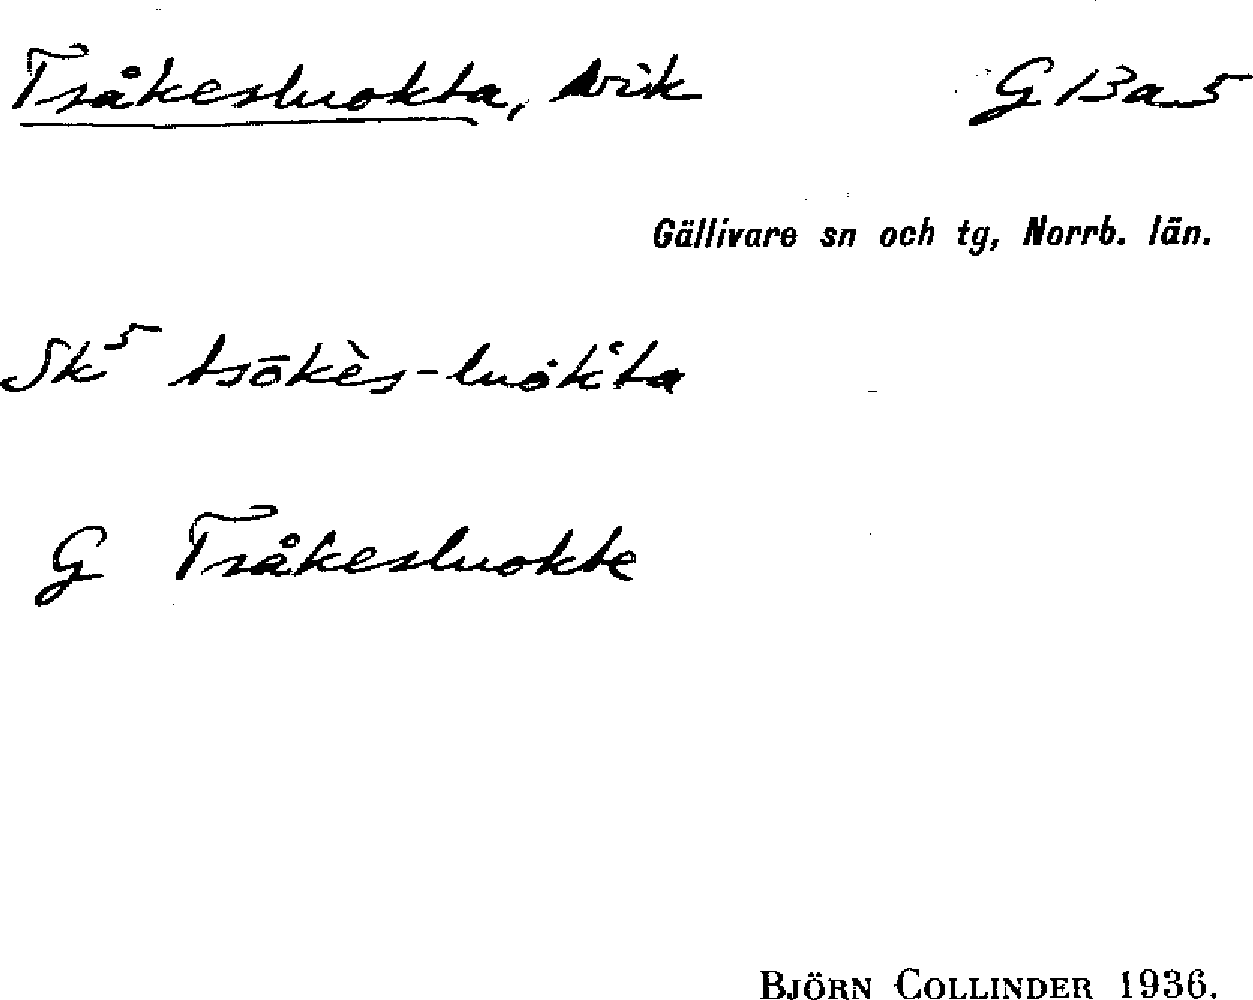 Tsåkesluokta, vik G 13 a 5
Gällivare sn och tg, Norrb. län.
Sk⁵ tsōkès-luȯk'ta
G Tsåkesluokte
BJÖRN COLLINDER 1936.